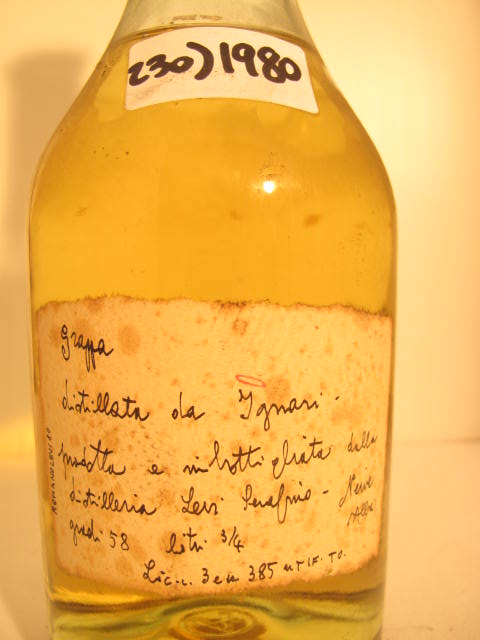 230) 1980
grappa
distillata da Ignari -
prodotta e imbottigliata dalla
distilleria Levi Serafino - Neive
Alba
gradi 58 litri 3/4
Lic. 385 UTIF. TO.
ROMANO LEVI 80